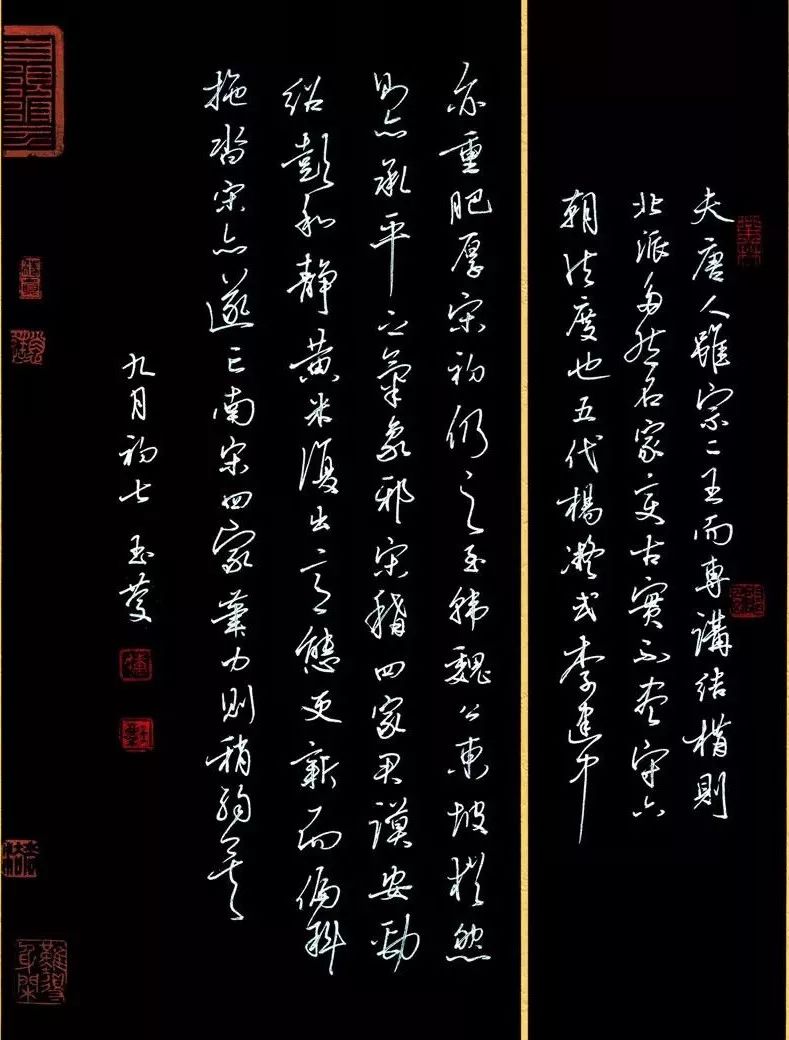 夫唐人雖宗二王而專講結構則
北派多然名家变古實不盡守六
朝法度也五代楊凝式李建中
亦重肥厚宋初仍之至韓魏公東坡椎然
即亦承平之氣象邪宋稱四家君謨安勁
紹彭和靜黃米復出意態更新而偏斜
拖沓宋亦遂亡南宋四家筆力則稍弱矣
九月初七 玉
難得
身閑